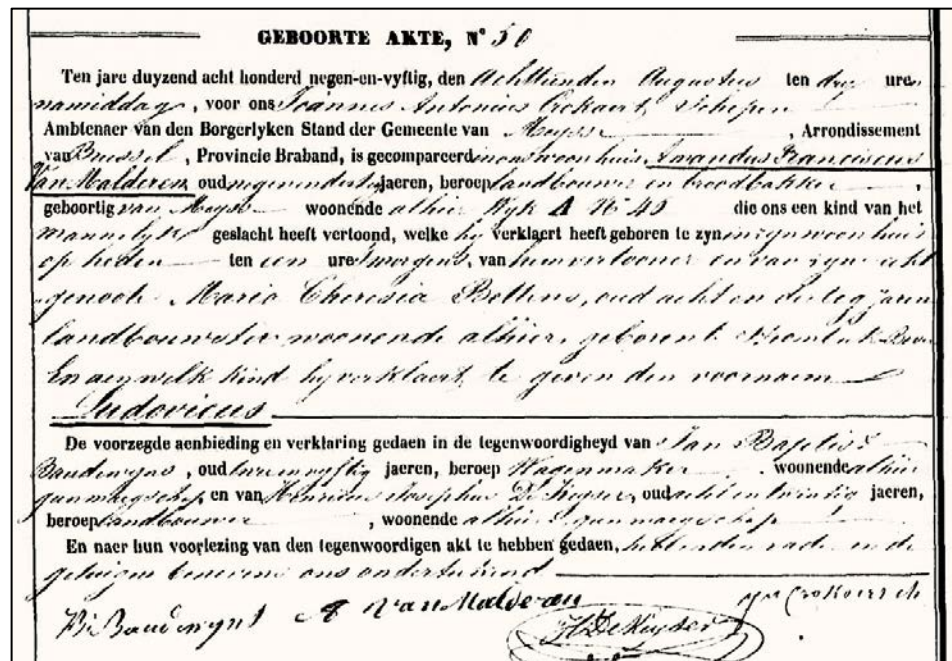 GEBOORTE AKTE, N° 50
Ten jare duyzend acht honderd negen-en-vyftig, den Achttienden Augustus ten dry uren
namiddags, voor ons Joannes Antonius Crokaert, Schepen
Ambtenaer van den Borgerlyken Stand der Gemeente van Meysse, Arrondissement
van Brussel, Provincie Braband, is gecompareerd in ons woonhuis, Amandus Franciscus
Van Malderen, oud negenendertig jaeren, beroep landbouwer en broodbakker,
geboortig van Meysse woonende alhier Wyk A N° 40 die ons een kind van het
mannelyk geslacht heeft vertoond, welke hy verklaert heeft geboren te zyn in zyn woonhuis
op heden ten een ure 's morgens, van hem vertooner en van zyne echt
genoote Maria Theresia Bottens, oud acht en dertig jaren
landbouwster woonende alhier, geboren t
En aen welk kind hy verklaert te geven den voornaem
Ludovicus
De voorzegde aenbieding en verklaring gedaen in de tegenwoordigheyd van Jan Baptist
Baudewyns, oud twee en vyftig jaeren, beroep Wagenmaker woonende alhier
gunmaegschap, en van Henricus Josephus De Keyser, oud acht en twintig jaeren,
beroep landbouwer, woonende alhier gunmaegschap
En naer hun voorlezing van den tegenwoordigen akt te hebben gedaen, hebben den vader en de
getuigen benevens ons onderteekend
Bt Baudewyns A Van Malderen H De Keyser Crokaert sch